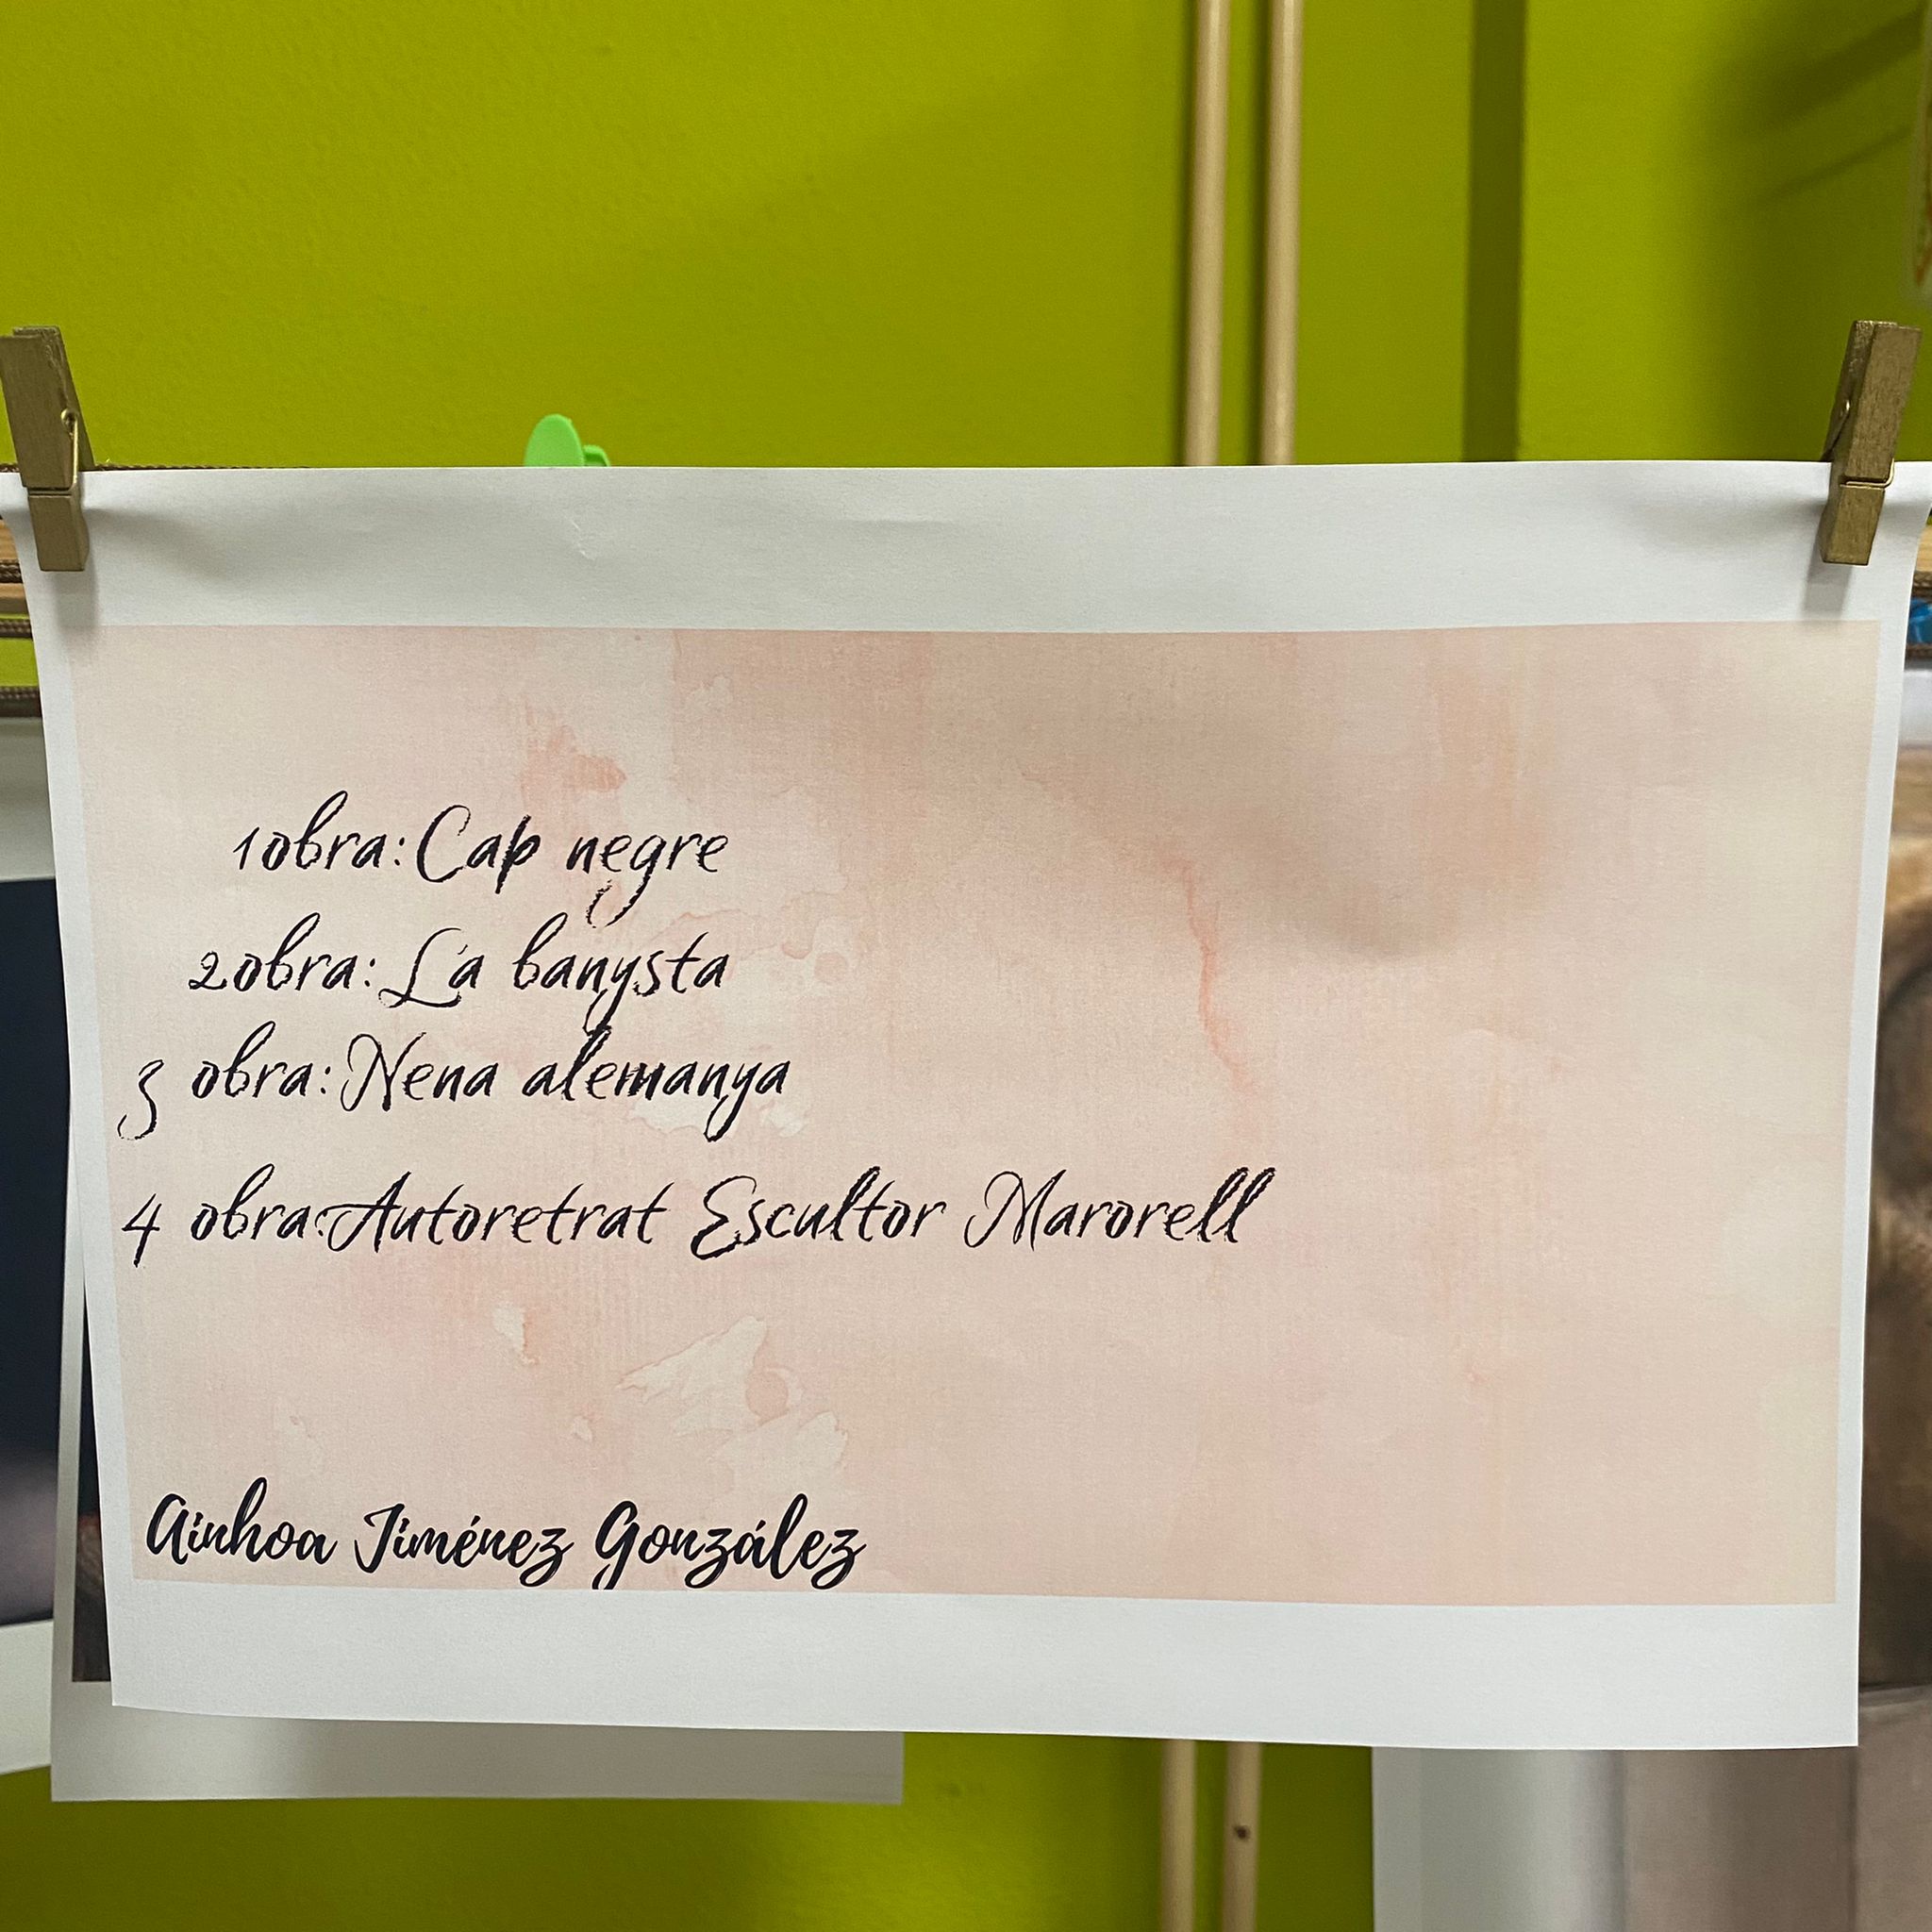 1obra:Cap negre
2obra:La banysta
3 obra:Nena alemanya
4 obra:Autoretrat Escultor Marorell
Ainhoa Jiménez González